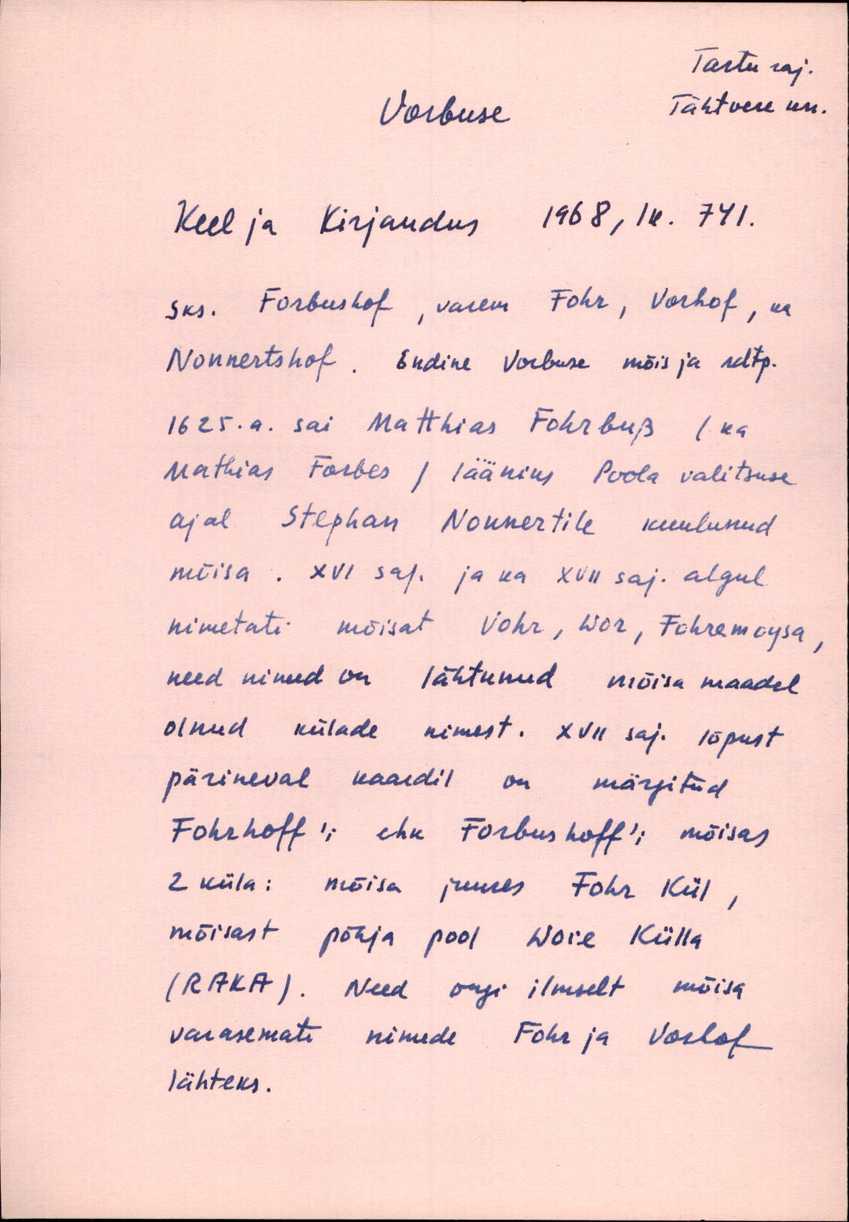 Tartu raj.
Tähtvere kn.
Vorbuse
Keel ja Kirjandus 1968, lk. 741.
sks. Forbushof, varem Fohr, Vorhof, ka
Nonnertshof. Endine Vorbuse mõis ja rdtp.
1625.a. sai Matthias Fohrbuß (ka
Mathias Forbes) lääniks Poola valitsuse
ajal Stephan Nonnertile kuulunud
mõisa. XVI saj. ja ka XVII saj. algul
nimetati mõisat Vohr, Wor, Fohremoysa,
need nimed on lähtunud mõisa maadel
olnud külade nimest. XVII saj. lõpust
pärineval kaardil on märgitud
Fohrhoff'i ehk Forbushoff'i mõisas
2 küla: mõisa juures Fohr Kül,
mõisast põhja pool Wore Külla
(RAKA). Need ongi ilmselt mõisa
varasemate nimede Fohr ja Vorhof
lähteks.